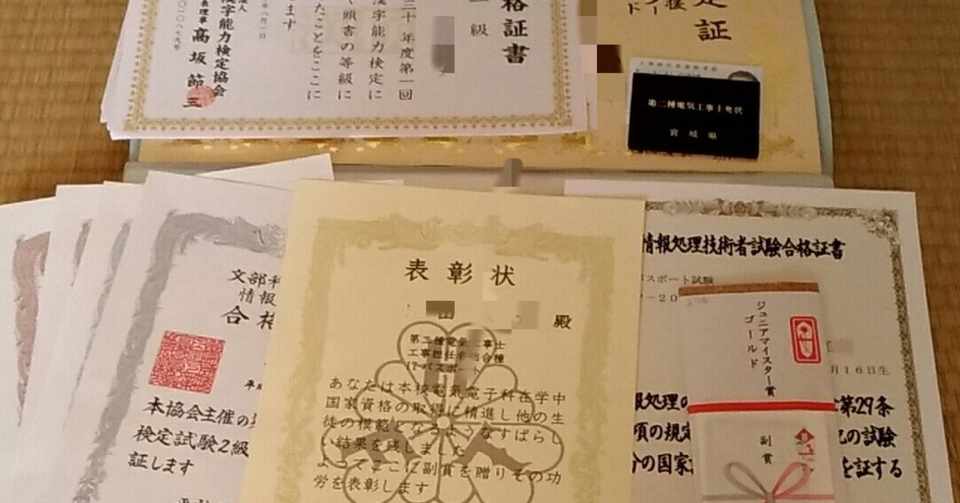 格証書
級
三十年度第一回
漢字能力検定に
頭書の等級に
たことをここに
ます
漢字能力検定協会
髙坂節三
定証
第二種電気工事士免状
宮城県
文部科
情報
合格
本協会主催の
検定試験2級
証します
表彰状
殿
第二種電気工事士
ITパスポート
あなたは本校電気電子科在学中
国家資格の取得に精進し他の生
徒の模範となるようなすばらし
い結果を残しました
よってここに副賞を贈りその功
労を表彰します
情報処理技術者試験合格証書
パスポート試験
月16日生
第29条
項の規
の試験
分の国家
を証する
ジュニアマイスター賞
ゴールド
副賞